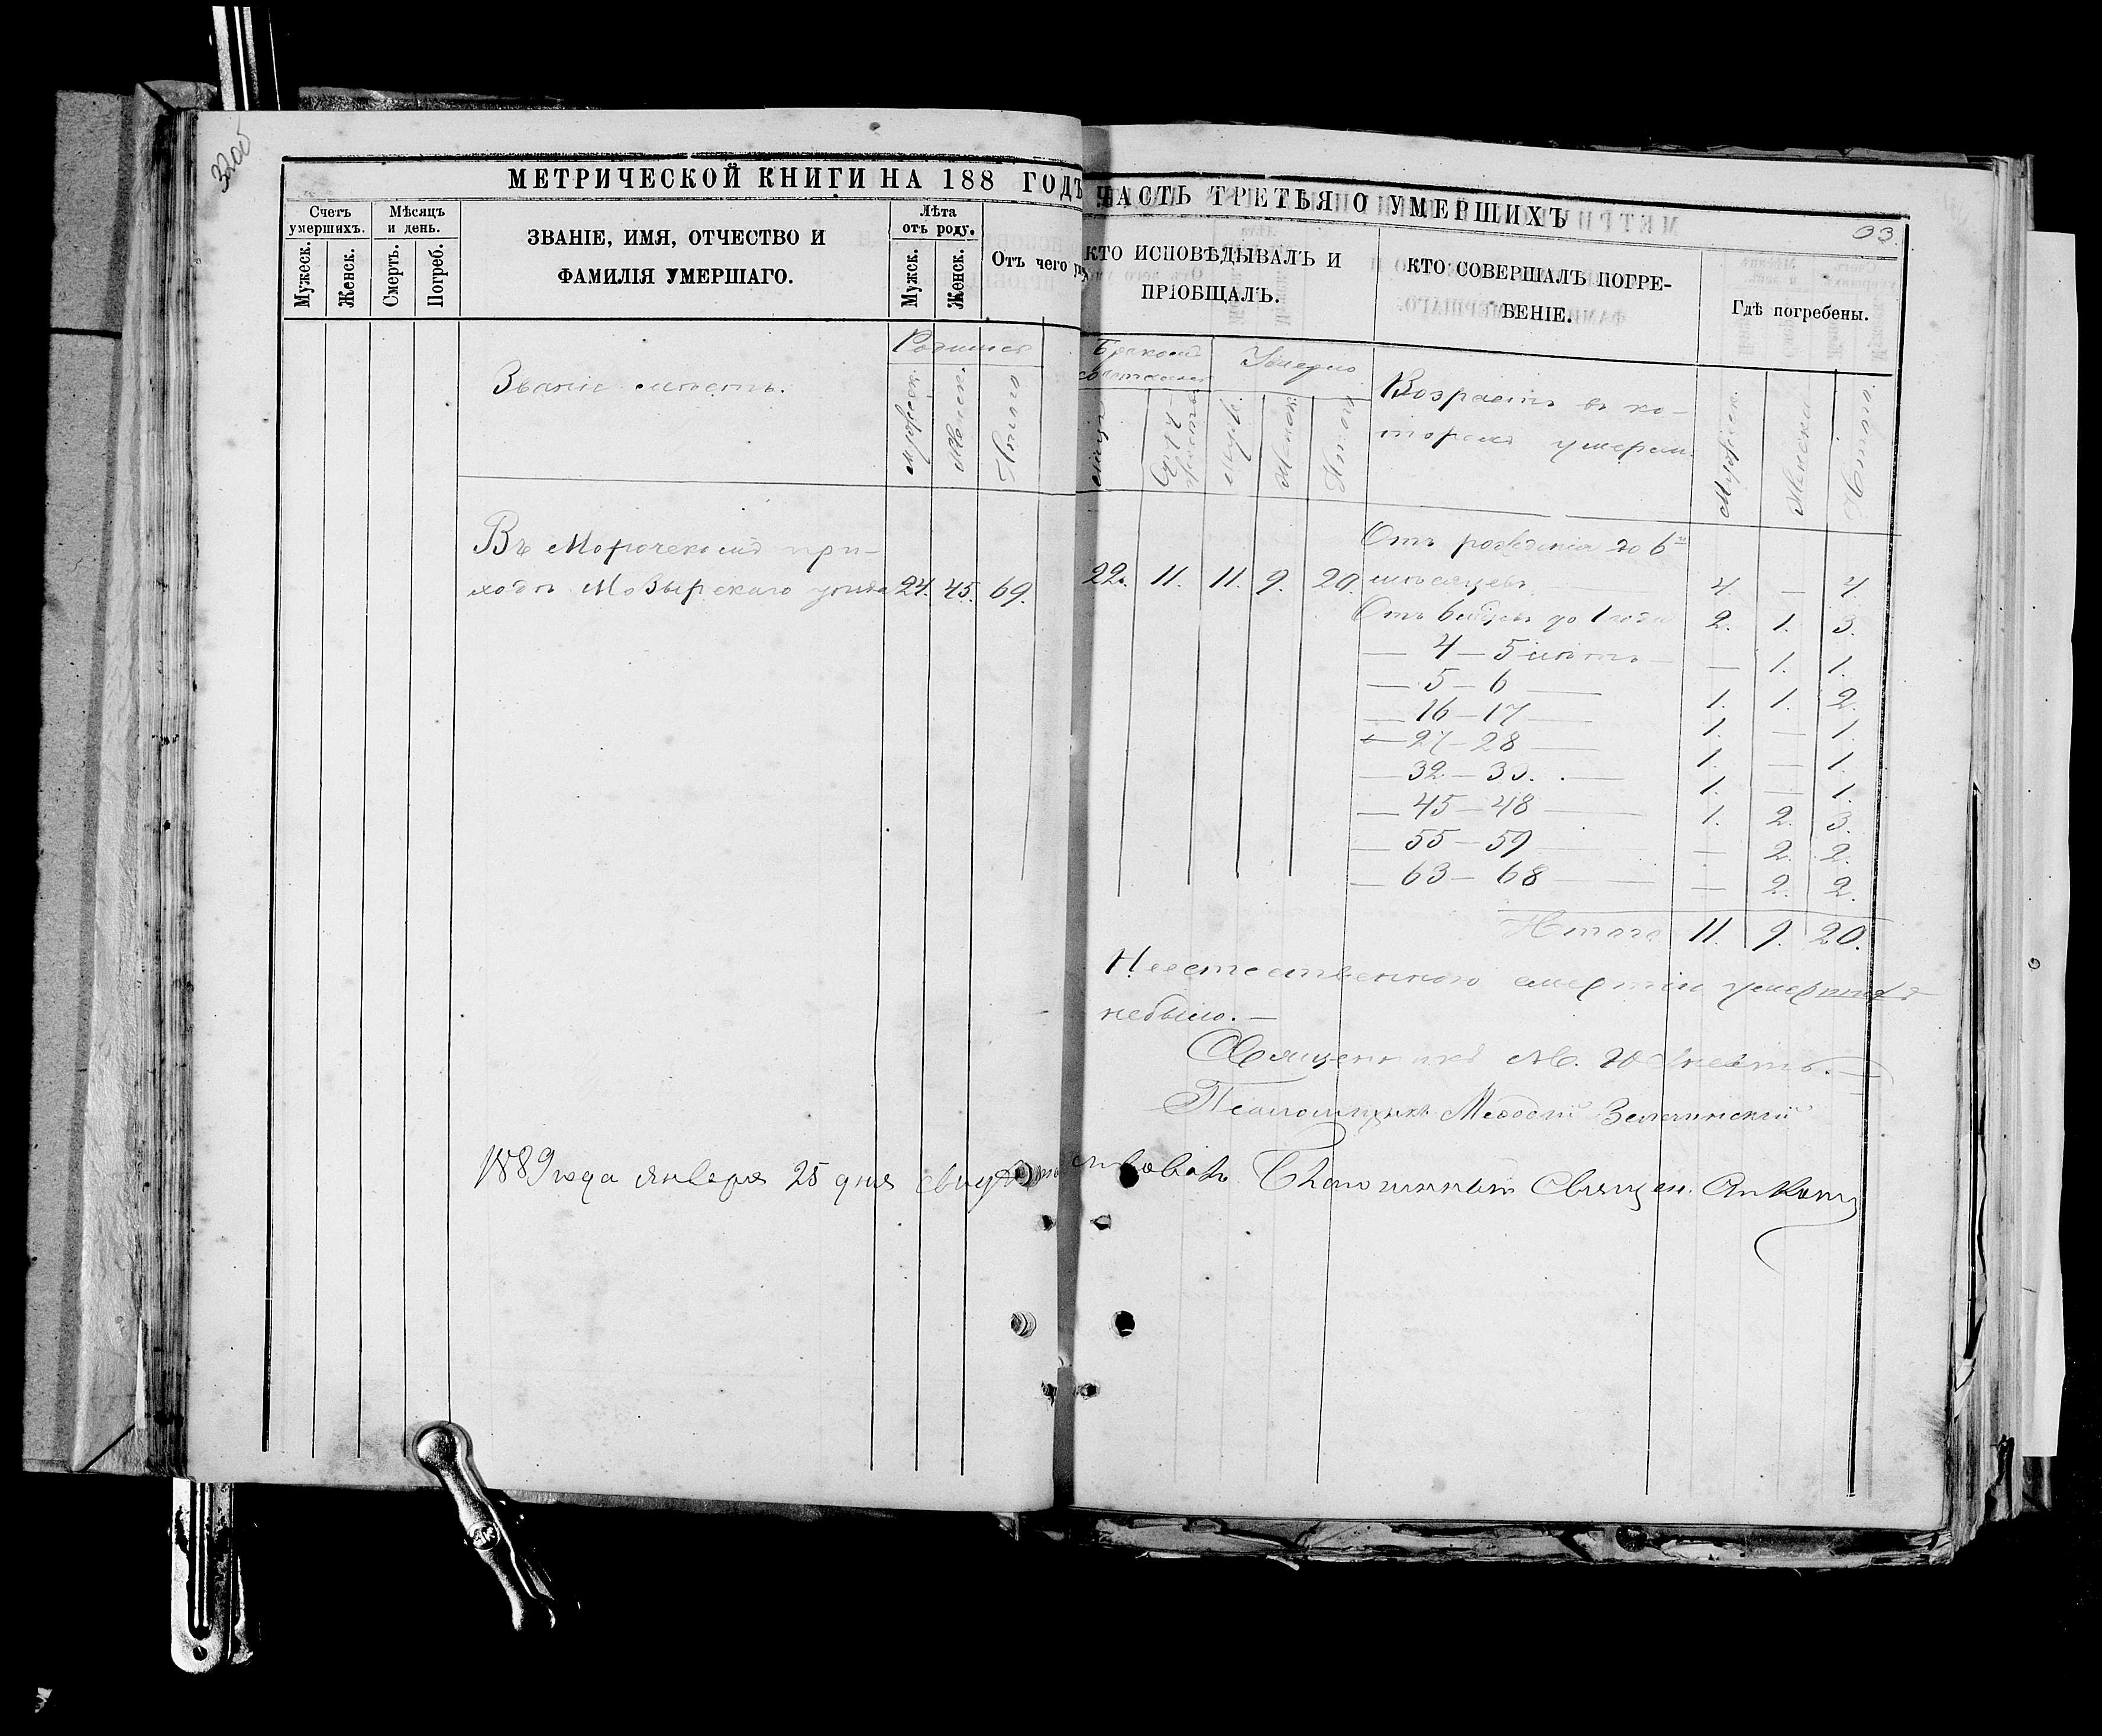 МЕТРИЧЕСКОЙ КНИГИ НА 188 ГОДЪ
Счетъ умершихъ.
Мужеск.
Женск.
Мѣсяцъ и день.
Смерть.
Погреб.
ЗВАНІЕ, ИМЯ, ОТЧЕСТВО И
ФАМИЛІЯ УМЕРШАГО.
Лѣта отъ роду.
Мужск.
Женск.
Отъ чего
Званіе мѣстъ.
Родилися
Мужеск.
Женск.
Итого
Въ Морочскомъ при-
ходѣ Мозырскаго уѣзда 24. 45. 69.
1889 года января 25 дня
ЧАСТЬ ТРЕТЬЯ О УМЕРШИХЪ
33.
КТО ИСПОВѢДЫВАЛЪ И
ПРІОБЩАЛЪ.
КТО СОВЕРШАЛЪ ПОГРЕ-
БЕНІЕ.
Гдѣ погребены.
Бракомъ
Умерло
Возрастъ въ ко-
торомъ умерли.
Мужеск.
Женск.
Итого
Мужеск.
Женска
Итого
22. 11. 11. 9. 20.
Отъ рожденія до 6и
мѣсяцевъ 4. — 4
Отъ 6 мѣсяц. до 1 года 2. 1. 3.
— 4 — 5 лѣтъ — — 1. 1.
— 5 — 6 — 1. 1. 2.
— 16 — 17 — 1. — 1.
— 27 — 28 — 1. — 1.
— 32 — 33. — 1. — 1.
— 45 — 48 — 1. 2. 3.
— 55 — 59 — — 2. 2.
— 63 — 68 — — 2. 2.
Итого 11. 9. 20.
Неестественною смертію умершихъ
небыло. —
Священникъ М.
Псаломщикъ Меѳодій
Благочинный Священ.